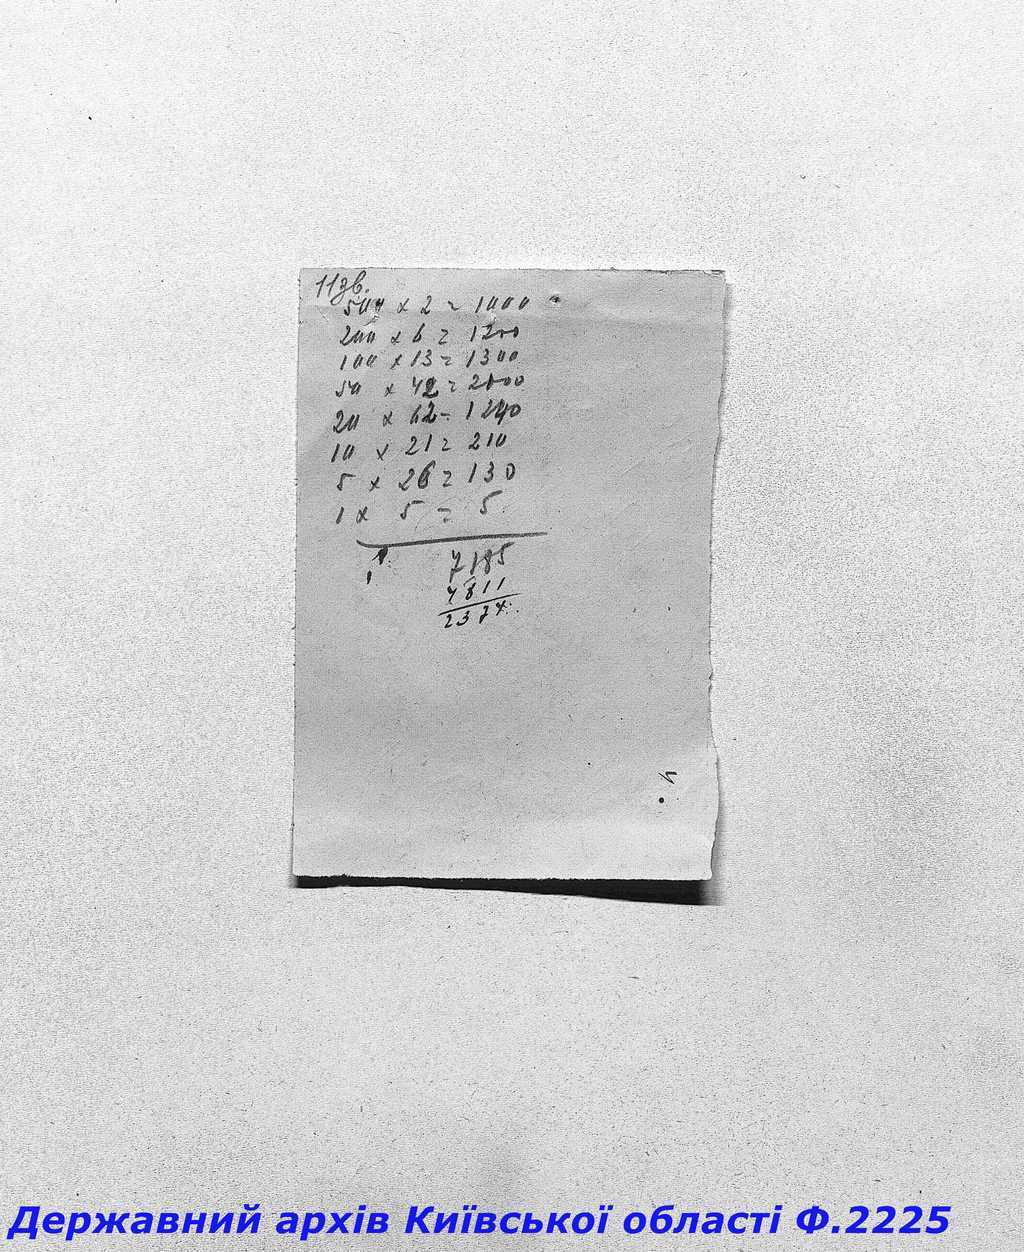 11зв.
500 x 2 = 1000
200 x 6 = 1200
100 x 13 = 1300
50 x 42 = 2100
20 x 62 = 1240
10 x 21 = 210
5 x 26 = 130
1 x 5 = 5
7185
4811
2374
Державний архів Київської області Ф.2225